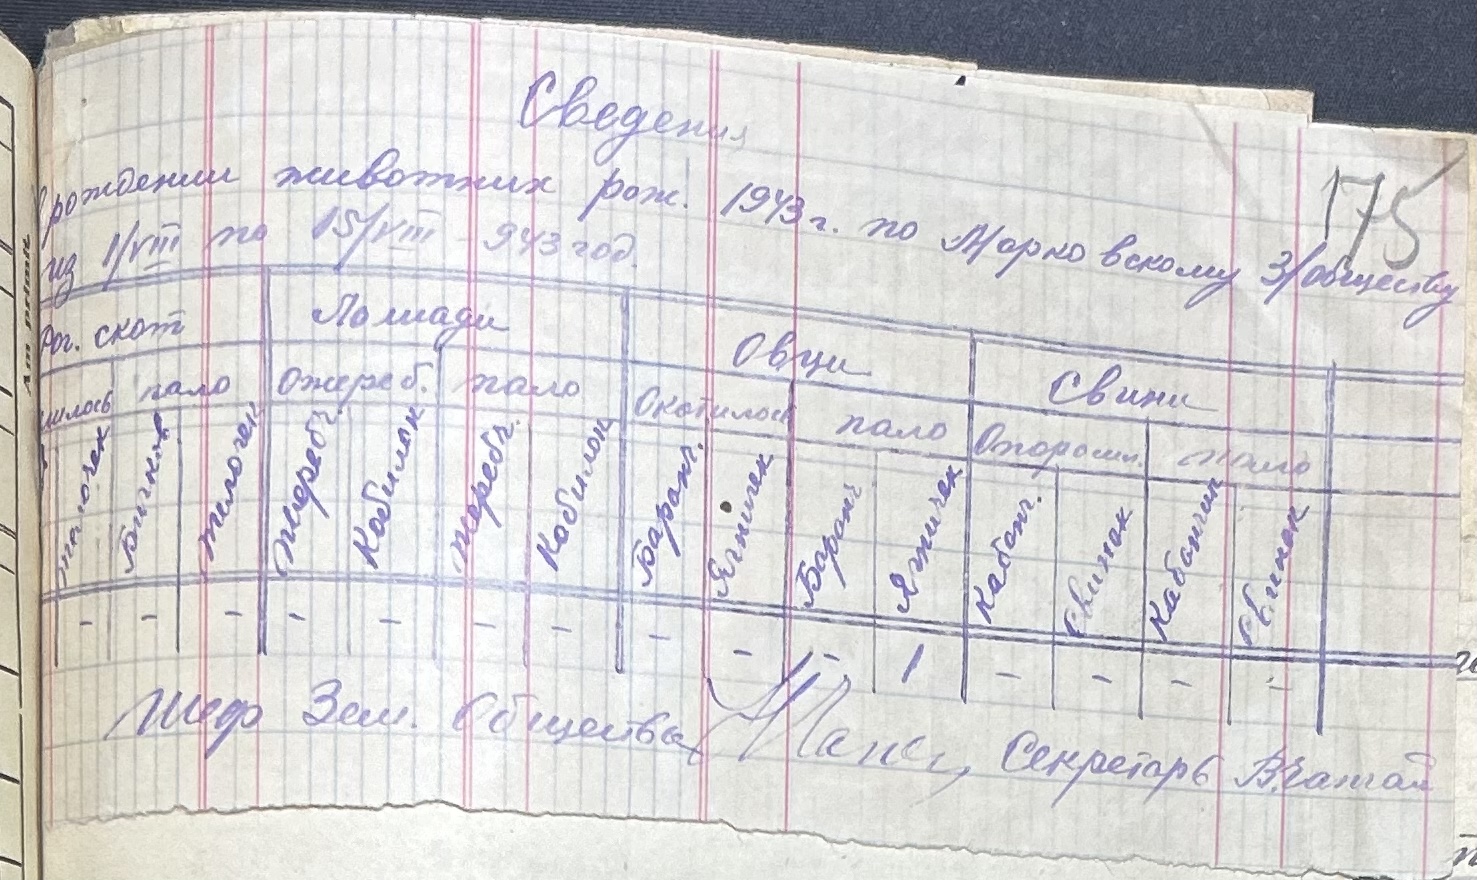 Сведения
рождении животних рож. 1943 г. по Марковскому З/обществу
175
из 1/VIII по 15/VIII - 943 год.
Рог. скот Лошади Овци Свини
пало Ожереб. пало Окотилось пало Опорос. пало
телочек бичков тилочек жеребч. Кобилок жеребч. Кобилок Баранч. Ягничек Баранч Ягничек Кабанч. свинок Кабанчик свинок
- - - - - - - - - - 1 - - - -
Шеф Зем. Общества Секретарь